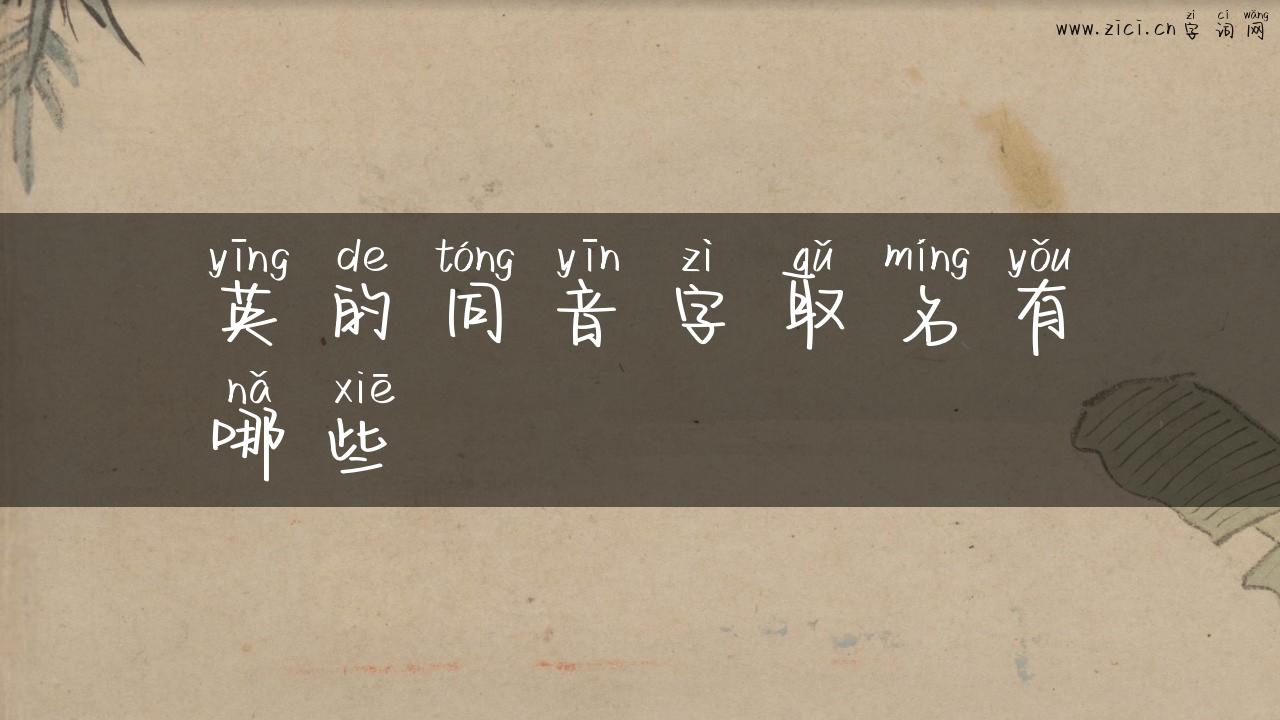 zì cí wǎng
www.zici.cn 字词网
yīng de tóng yīn zì qǔ míng yǒu
英的同音字取名有
nǎ xiē
哪些